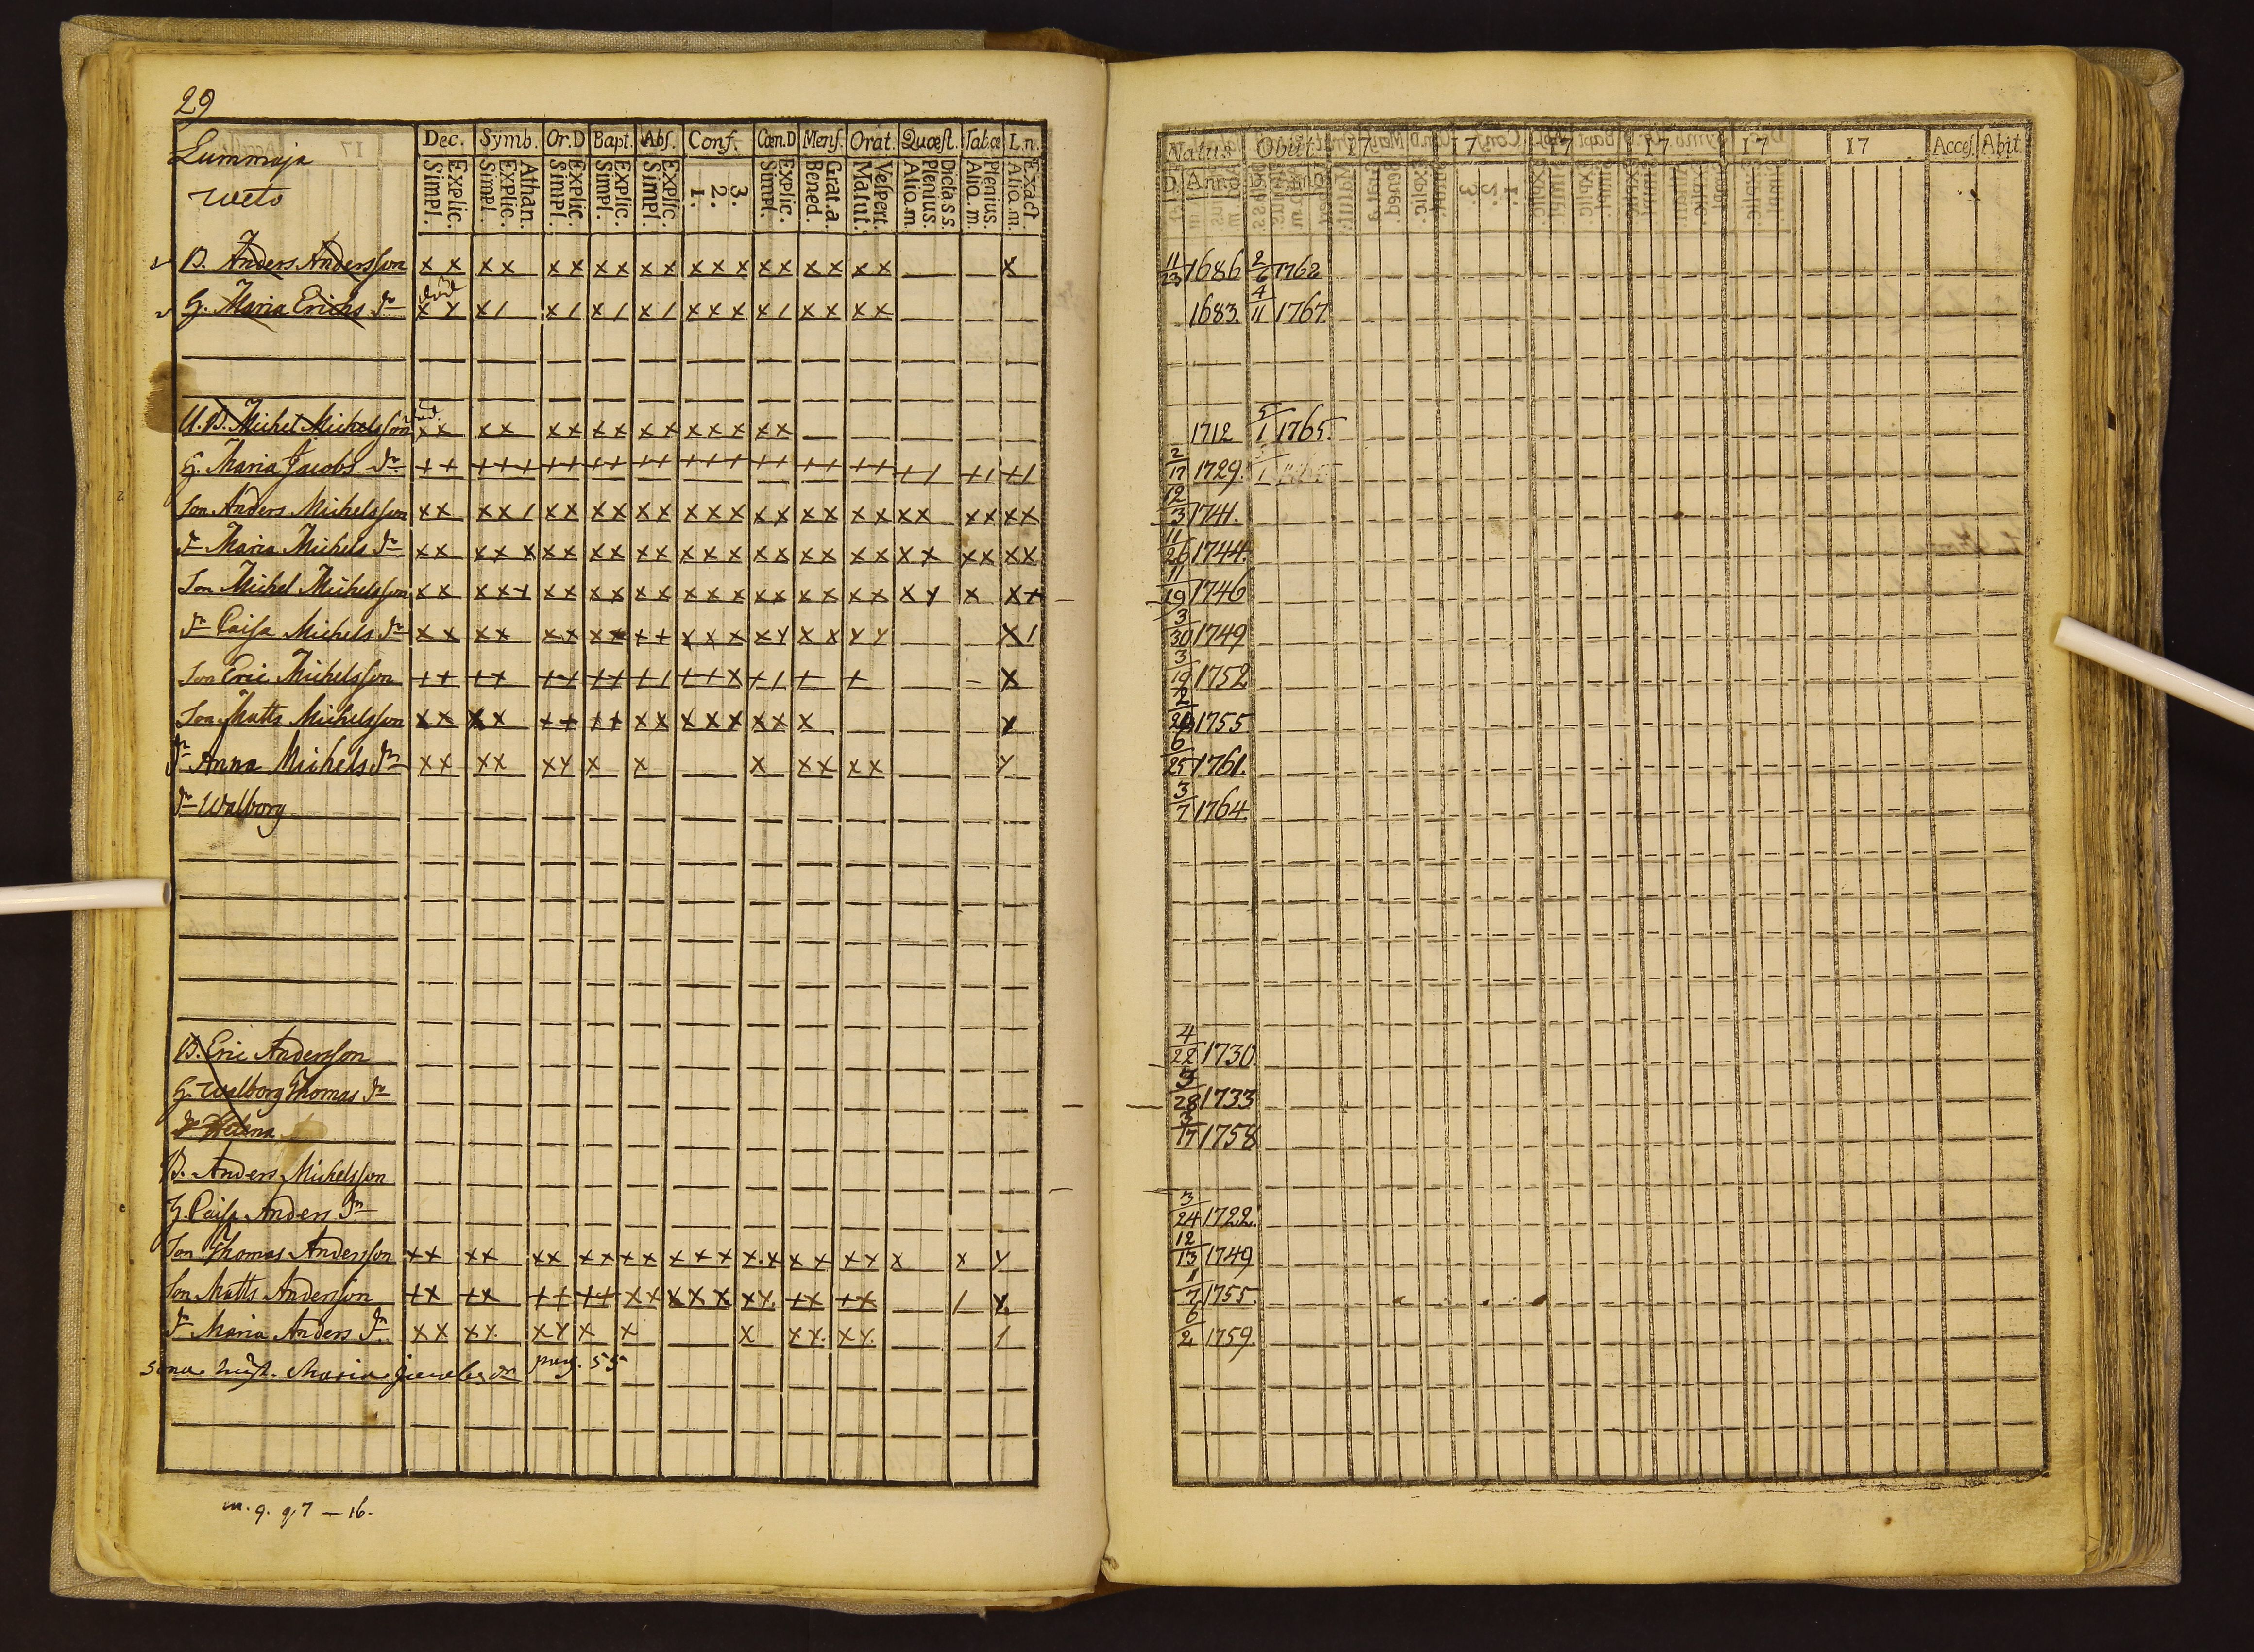 29
Lummaja
Weto
Dec. Symb. Or.D Bapt. Abs. Conf. Cœn.D Mens. Orat. Quæst. Tabæ L.n.
Simpl. Explic. Simpl. Explic. Athan. Simpl. Explic. Simpl. Explic. Simpl. Explic. 1. 2. 3. Simpl. Explic. Bened. Grat.a. Matut. Vespert. Aliq.m Plenius. Dicta S S. Aliq.m. Plenius. Aliq.m. Exact
B. Anders Andersson x x x x x x x x x x x x x x x x x x x x
död
G. Maria Erichs dr x x x / x / x / x / x x x x / x x x x
U.B. Michel Michelsson död. x x x x x x x x x x x x x x x
G. Maria Jacobs dr
Son Anders Michelsson x x x x / x x x x x x x x x x x x x x x x x x x x x x
dr Maria Michels dr x x x x x x x x x x x x x x x x x x x x x x x x x x
Son Michel Michelsson
dr Caisa Michels dr
Son Eric Michelsson
Son Matts Michelsson
dr Anna Michels dr
dr Walborg
B. Eric Andersson
G. Walborg Thomas dr
dr Helena
B. Anders Michelsson
G. Caisa Anders dr
Son Thomas Andersson
Son Matts Andersson
dr Maria Anders dr
Maria pag. 55
m. q. q 7 — 16.
Natus Obiit 17 17 17 17 17 17 Acces. Abit.
D. Anno D. Anno
11/23 1686 2/6 1762
1683. 4/11 1767
1712 5/1 1765.
2/17 1729.
12/3 1741.
11/26 1744.
11/19 1746
3/30 1749
3/19 1752
2/20 1755.
6/25 1761.
3/7 1764.
4/22 1730.
3/28 1733
3/17 1758
3/24 1722.
12/13 1749
1/7 1755.
6/2 1759.